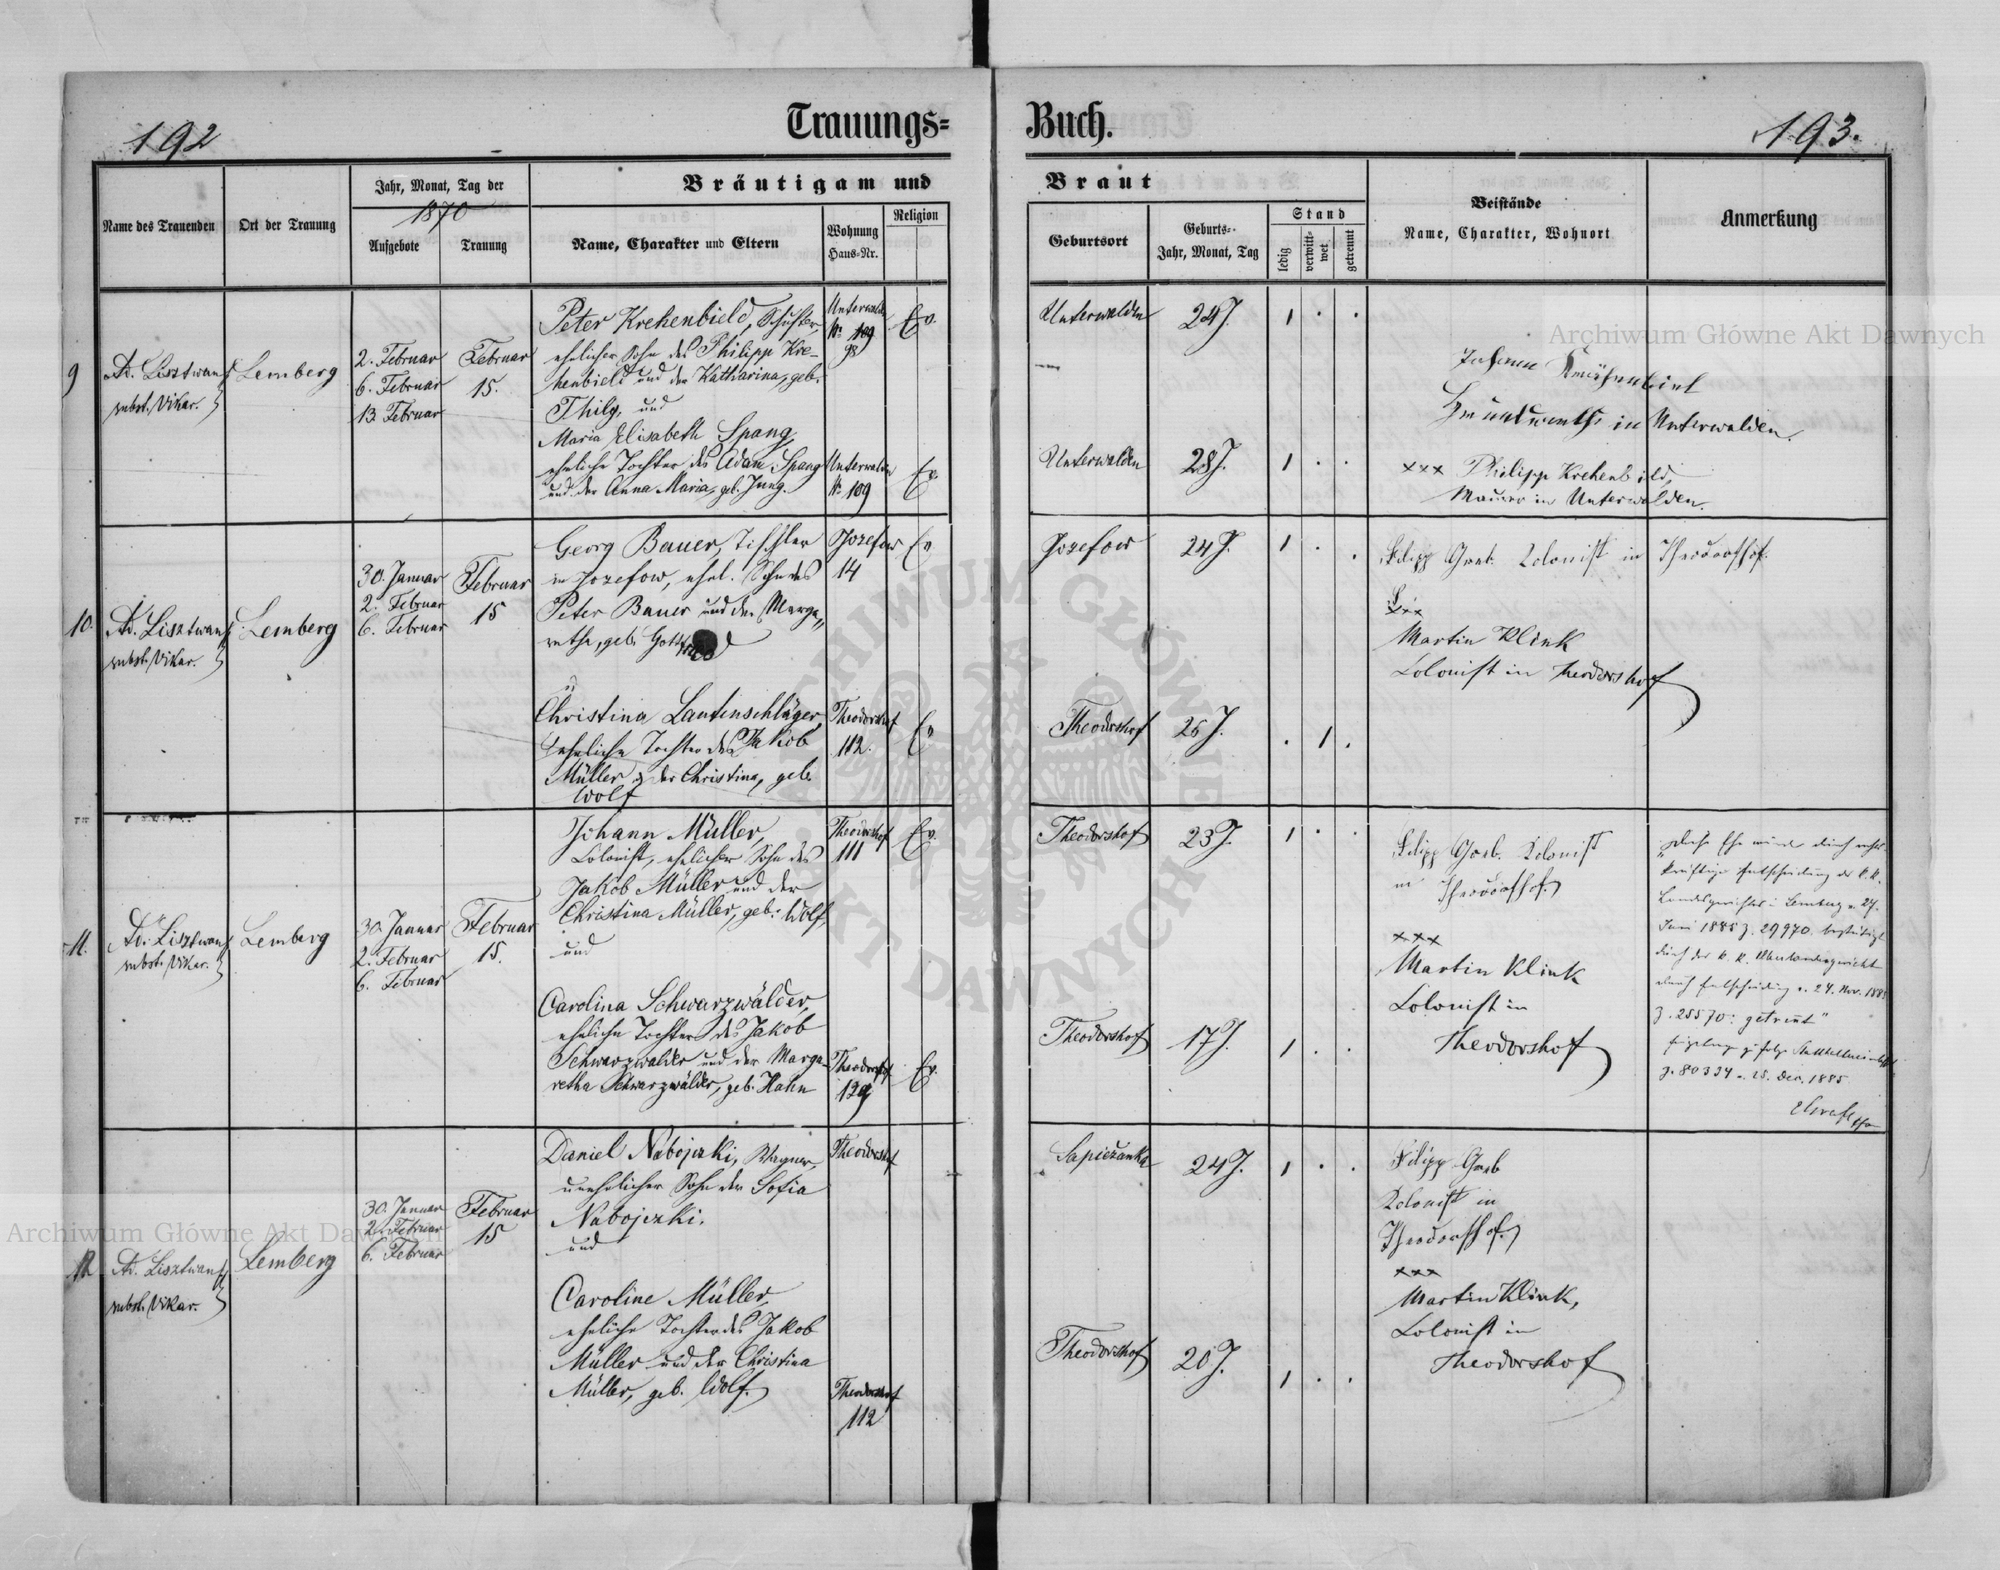 192
Trauungs=
Buch.
193.
Name des Trauenden
Ort der Trauung
Jahr, Monat, Tag der
1870
Aufgebote
Trauung
Bräutigam und
Name, Charakter und Eltern
Wohnung
Haus=Nr.
Religion
Braut
Geburtsort
Geburts=
Jahr, Monat, Tag
Stand
ledig
verwitt=
wet
getrennt
Beistände
Name, Charakter, Wohnort
Anmerkung
9
Ad. Lisztwan
subst. Vikar.
Lemberg
2. Februar
6. Februar
13. Februar
Februar
15.
Peter Krehenbield, Schuster,
ehelicher Sohn des Philipp Kre-
henbield und der Katharina, geb.
Thilg, und
Maria Elisabeth Spang,
eheliche Tochter des Adam Spang
und der Anna Maria, geb. Jung.
Unterwalden
Nr 109
98
Unterwalden
Nr 109
Ev.
Ev.
Unterwalden
24 J.
1 . .
Unterwalden
28 J.
1 . .
Johann
in Unterwalden.
xxx Philipp Krehenbild,
Maurer in Unterwalden.
10.
Ad. Lisztwan
subst. Vikar.
Lemberg
30. Januar
2. Februar
6. Februar
Februar
15
Georg Bauer, Tischler
in Jozefow, ehel. Sohn des
Peter Bauer und der Marga-
retha, geb.
Christina Lautenschläger,
eheliche Tochter des Jakob
Müller & der Christina, geb.
Wolf
Jozefow
14
Theodorshof
112.
Ev
Ev
Jozefow
24 J.
1 . .
Theodorshof
26 J.
. 1 .
Filipp Gorb. Kolonist in Theodorshof.
xxx
Martin Klink
Colonist in Theodorshof
11.
Ad. Lisztwan
subst. Vikar.
Lemberg
30. Januar
2. Februar
6. Februar
Februar
15.
Johann Müller,
Colonist, ehelicher Sohn des
Jakob Müller und der
Christina Müller, geb. Wolf,
und
Carolina Schwarzwälder,
eheliche Tochter des Jakob
Schwarzwälder und der Marga-
retha Schwarzwälder, geb. Hahn
Theodorshof
111
Theodorshof
129
Ev.
Ev.
Theodorshof
23 J.
1 . .
Theodorshof
17 J.
1 . .
Filipp Gorb. Kolonist
in Theodorshof.
xxx
Martin Klink
Colonist in
Theodorshof
"Diese Ehe wurde durch rechts-
kräftige Entscheidung des k. k.
Landesgerichtes in Lemberg v. 27.
Juni 1885 Z. 29970. bestätigt
durch das k. k. Oberlandesgericht
durch Entscheidung v. 24. Nov. 1885
Z. 25570: getrennt"
Z. 80334 v. 25. Dec. 1885
12
Ad. Lisztwan
subst. Vikar.
Lemberg
30. Januar
2. Februar
6. Februar
Februar
15
Daniel Nabojezki, Wagner,
unehelicher Sohn der Sofia
Nabojezki.
und
Caroline Müller,
eheliche Tochter des Jakob
Müller und der Christina
Müller, geb. Wolf.
Theodorshof
Theodorshof
112
Sapiežanka
24 J.
1 . .
Theodorshof
20 J.
1 . .
Filipp Gorb
Kolonist in
Theodorshof.
xxx
Martin Klink,
Colonist in
Theodorshof
Archiwum Główne Akt Dawnych
Archiwum Główne Akt Dawnych
ARCHIWUM GŁÓWNE AKT DAWNYCH